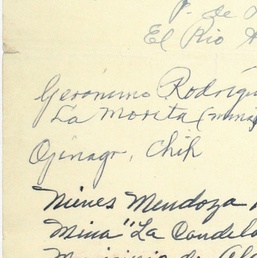 P. de
El Rio
Gerónimo Rodrígu
La Morita (mina
Ojinaga, Chih
Nieves Mendoza
Mina "La Candela
Municipio de